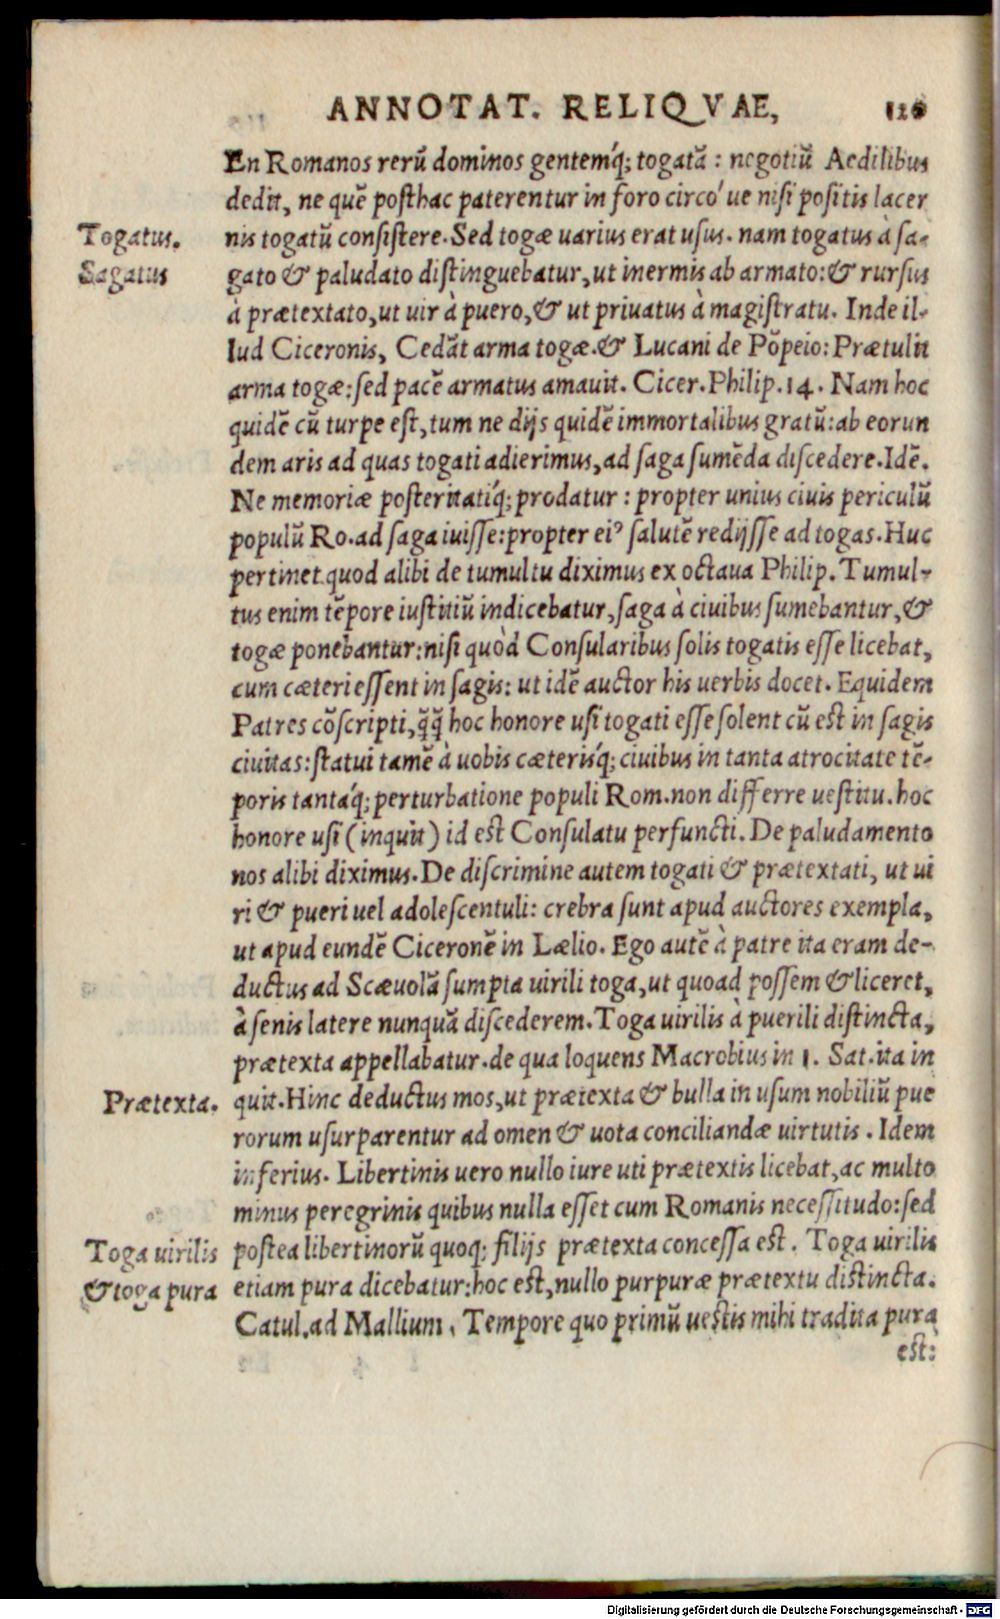 ANNOTAT. RELIQVAE, 120
En Romanos rerū dominos gentemq́; togatā: negotiū Aedilibus
dedit, ne quē posthac paterentur in foro circo´ue nisi positis lacer
Togatus. nis togatū consistere. Sed togæ uarius erat usus. nam togatus à sa-
Sagatus gato & paludato distinguebatur, ut inermis ab armato: & rursus
à prætextato, ut uir à puero, & ut priuatus à magistratu. Inde il-
lud Ciceronis, Cedāt arma togæ. & Lucani de Pōpeio: Prætulit
arma togæ: sed pacē armatus amauit. Cicer. Philip. 14. Nam hoc
quidē cū turpe est, tum ne dijs quidē immortalibus gratū: ab eorun
dem aris ad quas togati adierimus, ad saga sumēda discedere. Idē.
Ne memoriæ posteritatiq́; prodatur: propter unius ciuis periculū
populū Ro. ad saga iuisse: propter eiꝰ salutē redijsse ad togas. Huc
pertinet quod alibi de tumultu diximus ex octaua Philip. Tumul-
tus enim tēpore iustitiū indicebatur, saga à ciuibus sumebantur, &
togæ ponebantur: nisi quòd Consularibus solis togatis esse licebat,
cum cæteri essent in sagis: ut idē auctor his uerbis docet. Equidem
Patres cōscripti, q̄q̄ hoc honore usi togati esse solent cū est in sagis
ciuitas: statui tamē à uobis cæterisq́; ciuibus in tanta atrocitate tē-
poris tantaq́; perturbatione populi Rom. non differre uestitu. hoc
honore usi (inquit) id est Consulatu perfuncti. De paludamento
nos alibi diximus. De discrimine autem togati & prætextati, ut ui
ri & pueri uel adolescentuli: crebra sunt apud auctores exempla,
ut apud eundē Ciceronē in Lælio. Ego autē à patre ita eram de-
ductus ad Scæuolā sumpta uirili toga, ut quoad possem & liceret,
à senis latere nunquā discederem. Toga uirilis à puerili distincta,
prætexta appellabatur. de qua loquens Macrobius in 1. Sat. ita in
Prætexta. quit. Hinc deductus mos, ut prætexta & bulla in usum nobiliū pue
rorum usurparentur ad omen & uota conciliandæ uirtutis. Idem
inferius. Libertinis uero nullo iure uti prætextis licebat, ac multo
minus peregrinis quibus nulla esset cum Romanis necessitudo: sed
Toga uirilis postea libertinorū quoq; filijs prætexta concessa est. Toga uirilis
& toga pura etiam pura dicebatur: hoc est, nullo purpuræ prætextu distincta.
Catul. ad Mallium. Tempore quo primū uestis mihi tradita pura
est:
Digitalisierung gefördert durch die Deutsche Forschungsgemeinschaft - DFG